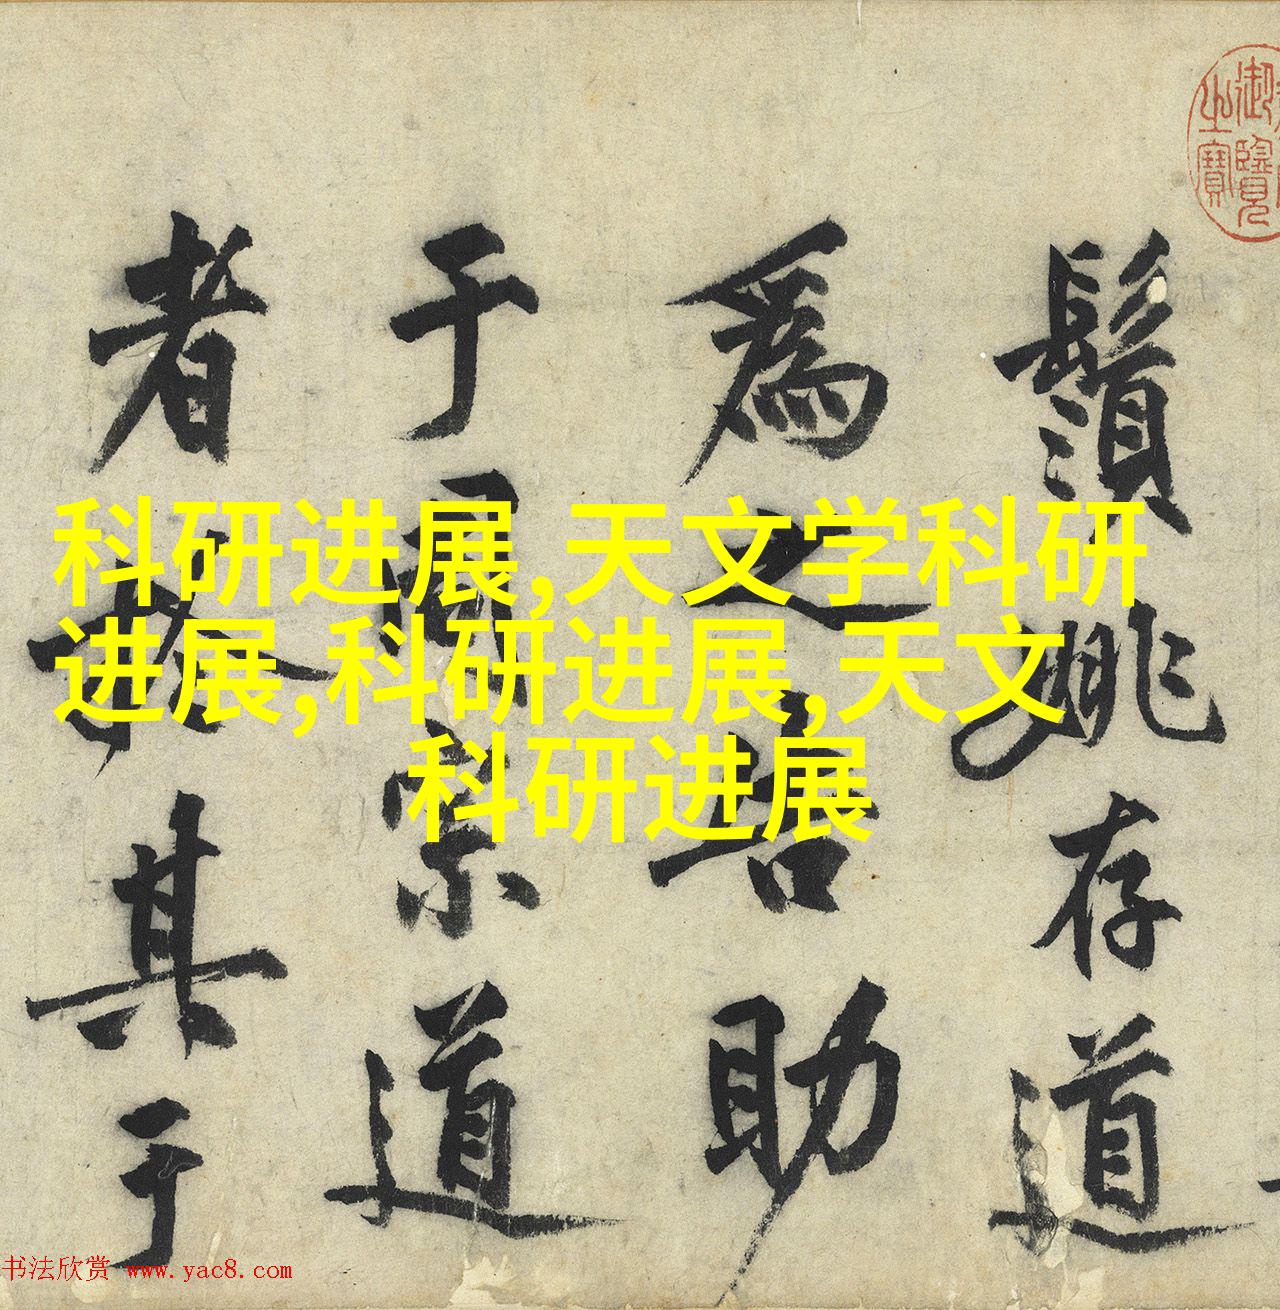 鬚眺存道
爲之
助
于
宗道
者
其于
科研进展,天文学科研
进展,科研进展,天文
科研进展
御覽
之寶
书法欣赏 www.yac8.com